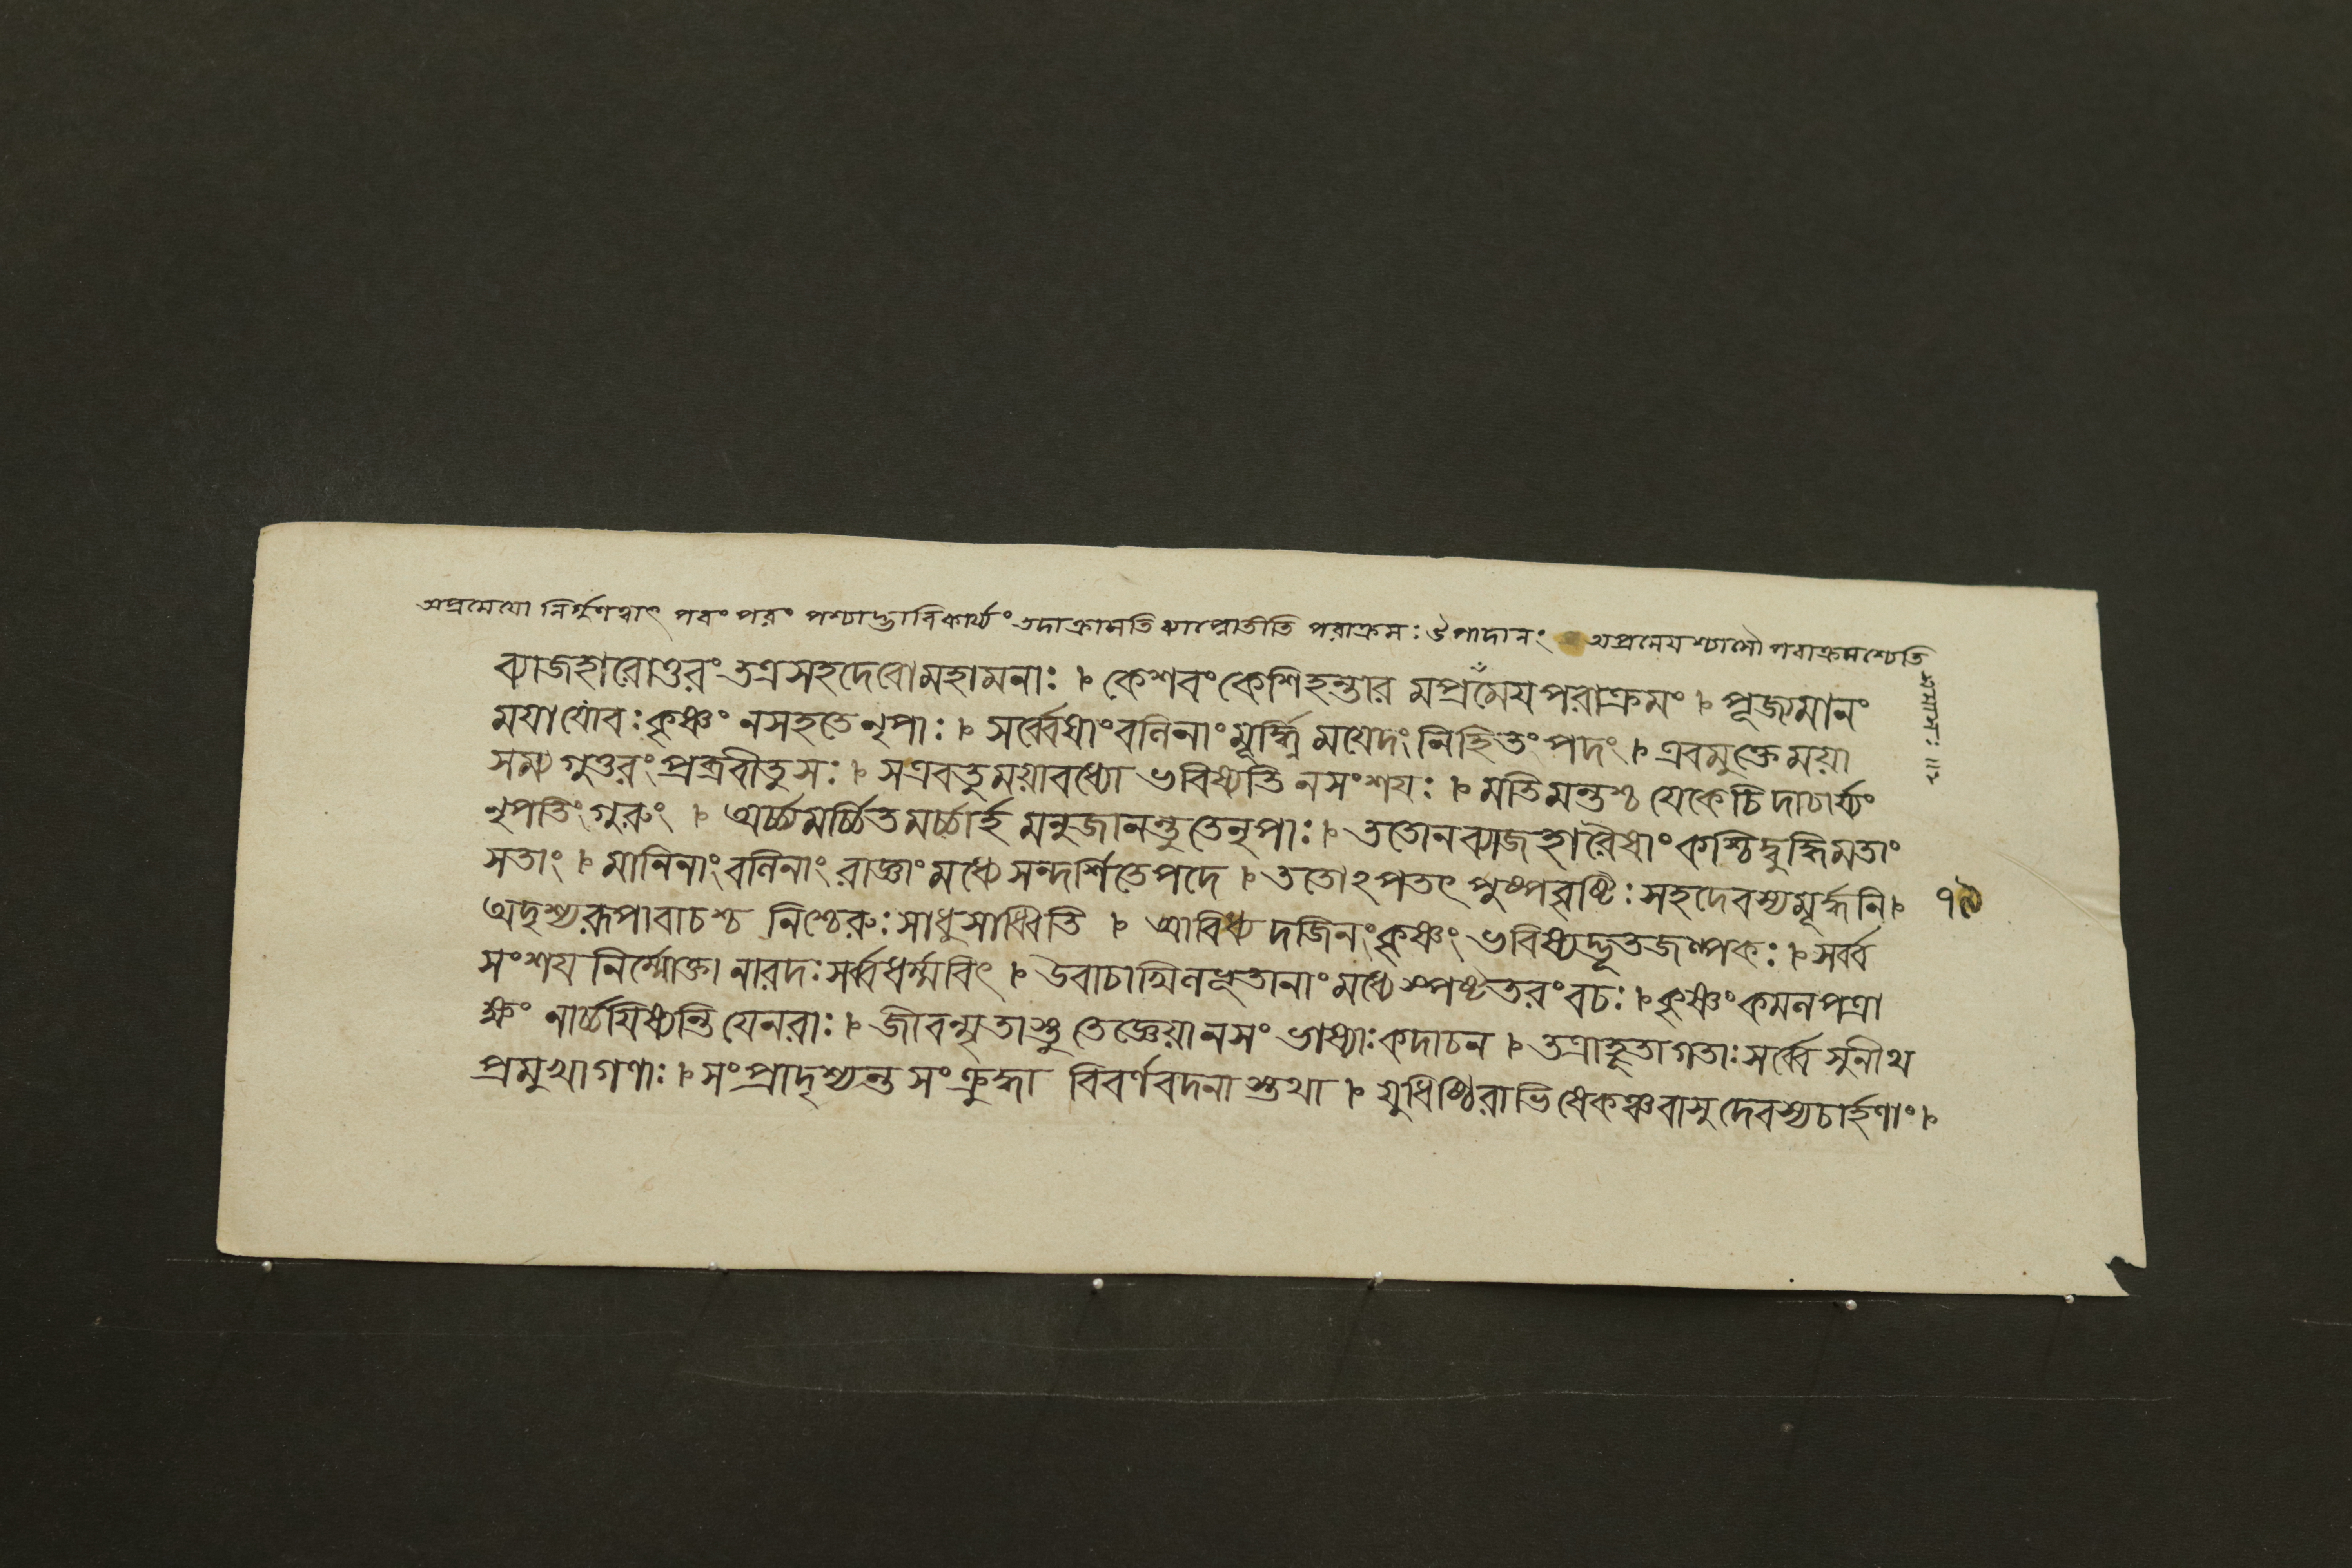 অপ্রমেযো নির্গুণত্বাৎ পরং পরং পশ্চাদ্ভাবিকার্য্যং তদাক্রামতি ব্যাপ্নোতীতি পরাক্রমঃ উপাদানং অপ্রমেযশ্চাসৌ পরাক্রমশ্চেতি
সমাসঃ ॥২
ব্যাজহারোত্তরং তত্র সহদেবো মহামনাঃ । কেশবং কেশিহন্তার মপ্রমেযপরাক্রমং । পূজ্যমানং
ময়া যো বঃ কৃষ্ণং ন সহতে নৃপাঃ । সর্ব্বেষাং বলিনাং মূর্দ্ধ্নি ময়েদং নিহিতং পদং । এবমুক্তে ময়া
সম্যগুত্তরং প্রব্রবীতু সঃ । স এব তু ময়া বধ্যো ভবিষ্যতি ন সংশযঃ । মতিমন্তশ্চ যে কেচিদাচার্য্যং
নৃপতিং গুরুং । অর্চ্চ্যমর্চ্চিতমর্চ্চার্হ মনুজানন্তু তে নৃপাঃ । ততো ন ব্যাজহারৈষাং কশ্চিদ্বুদ্ধিমতাং
সতাং । মানিনাং বলিনাং রাজ্ঞাং মধ্যে সন্দর্শিতে পদে । ততোঽপতৎ পুষ্পবৃষ্টিঃ সহদেবস্য মূর্দ্ধনি । ৭৯
অদৃশ্যরূপা বাচশ্চ নিশ্চেরুঃ সাধু সাধ্বিতি । আবিধ্যদজিনং কৃষ্ণং ভবিষ্যদ্ভূতজল্পকঃ । সর্ব্ব
সংশয নির্ম্মোক্তা নারদঃ সর্ব্বধর্ম্মবিৎ । উবাচাখিলভূতানাং মধ্যে স্পষ্টতরং বচঃ । কৃষ্ণং কমলপত্রা
ক্ষং নার্চ্চযিষ্যন্তি যে নরাঃ । জীবন্মৃতাস্তু তে জ্ঞেয়া ন সংভাষ্যাঃ কদাচন । তত্রাহূতা গতাঃ সর্ব্বে সুনীথ
প্রমুখা গণাঃ । সংপ্রাদৃশ্যন্ত সংক্রুদ্ধা বিবর্ণবদনাস্তথা । যুধিষ্ঠিরাভিষেকঞ্চ বাসুদেবস্য চার্হণাং ।